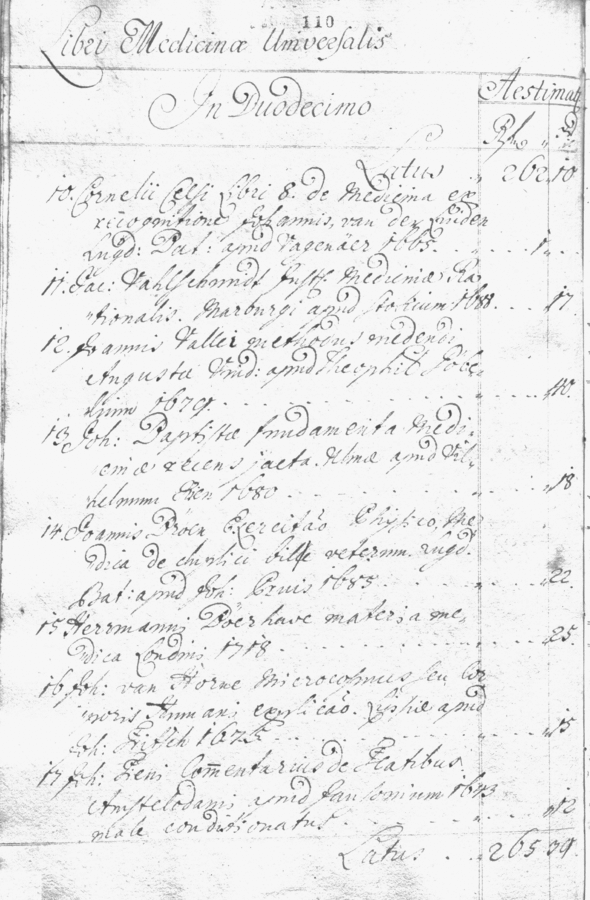 110
Libri Medicinæ Universalis
Aestimat
In Duodecimo
Rfl
Latus " 262.10
10. Cornelii Celsi Libri 8. de Medicina ex
recognitione Johannis van der Linden
Lugd: Bat: apud Wagenaer 1665. . . . 1 "
11. Jac: Waldschmidt Inst: Medicinæ Ra-
tionalis. Marburgi apud 1688. . . . " 17
12. Joannis Vallei methodus medendi
Augustæ Vind: apud Theophil Göbe-
lium 1679. . . . " 40.
13. Joh: Baptistæ fundamenta Medi-
cinæ recens jacta. Ulmæ apud Wil-
helmum 1680 . . . . " 18
14. Joannis Exercitão Physico Me-
dica de bile veterum. Lugd:
Bat: apud Joh: 1685. . . . " 22
15 Herrmanni Böerhave materia me-
dica Londini 1718. . . . " 25
16 Joh: van Horne Microcosmus seu Cor-
poris Humani explicão. Lipsiæ apud
Joh: Fritsch 1675. . . . " 15
17 Joh: Fieni Com̄entarius de Flatibus.
Amstelodami apud Jansonium 1643
male conditionatus. . . . " 12
Latus . . " 265 39.